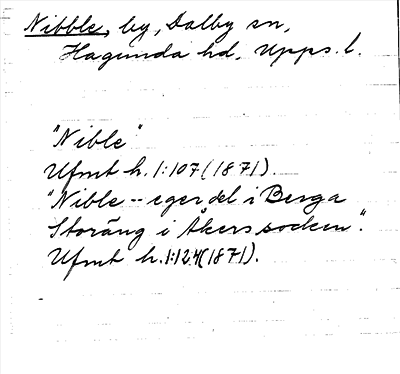 Nibble, by, Dalby sn,
Hagunda hd, Upps. l.
"Nible"
Ufmt h. 1:107 (1871).
"Nible -- eger del i Berga
Storäng i Åkers socken".
Ufmt h. 1:124 (1871).